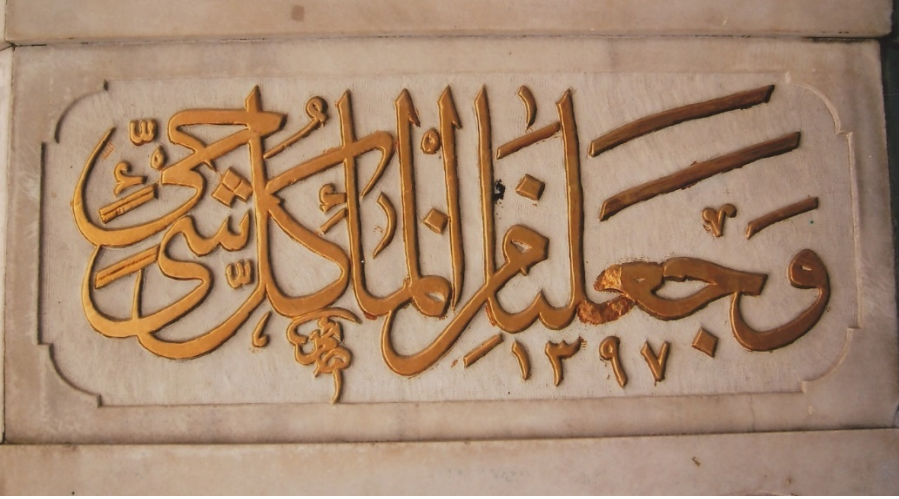 وَجَعَلْنَا مِنَ الْمَاءِ كُلَّ شَيْءٍ حَيٍّ
١٣٩٧